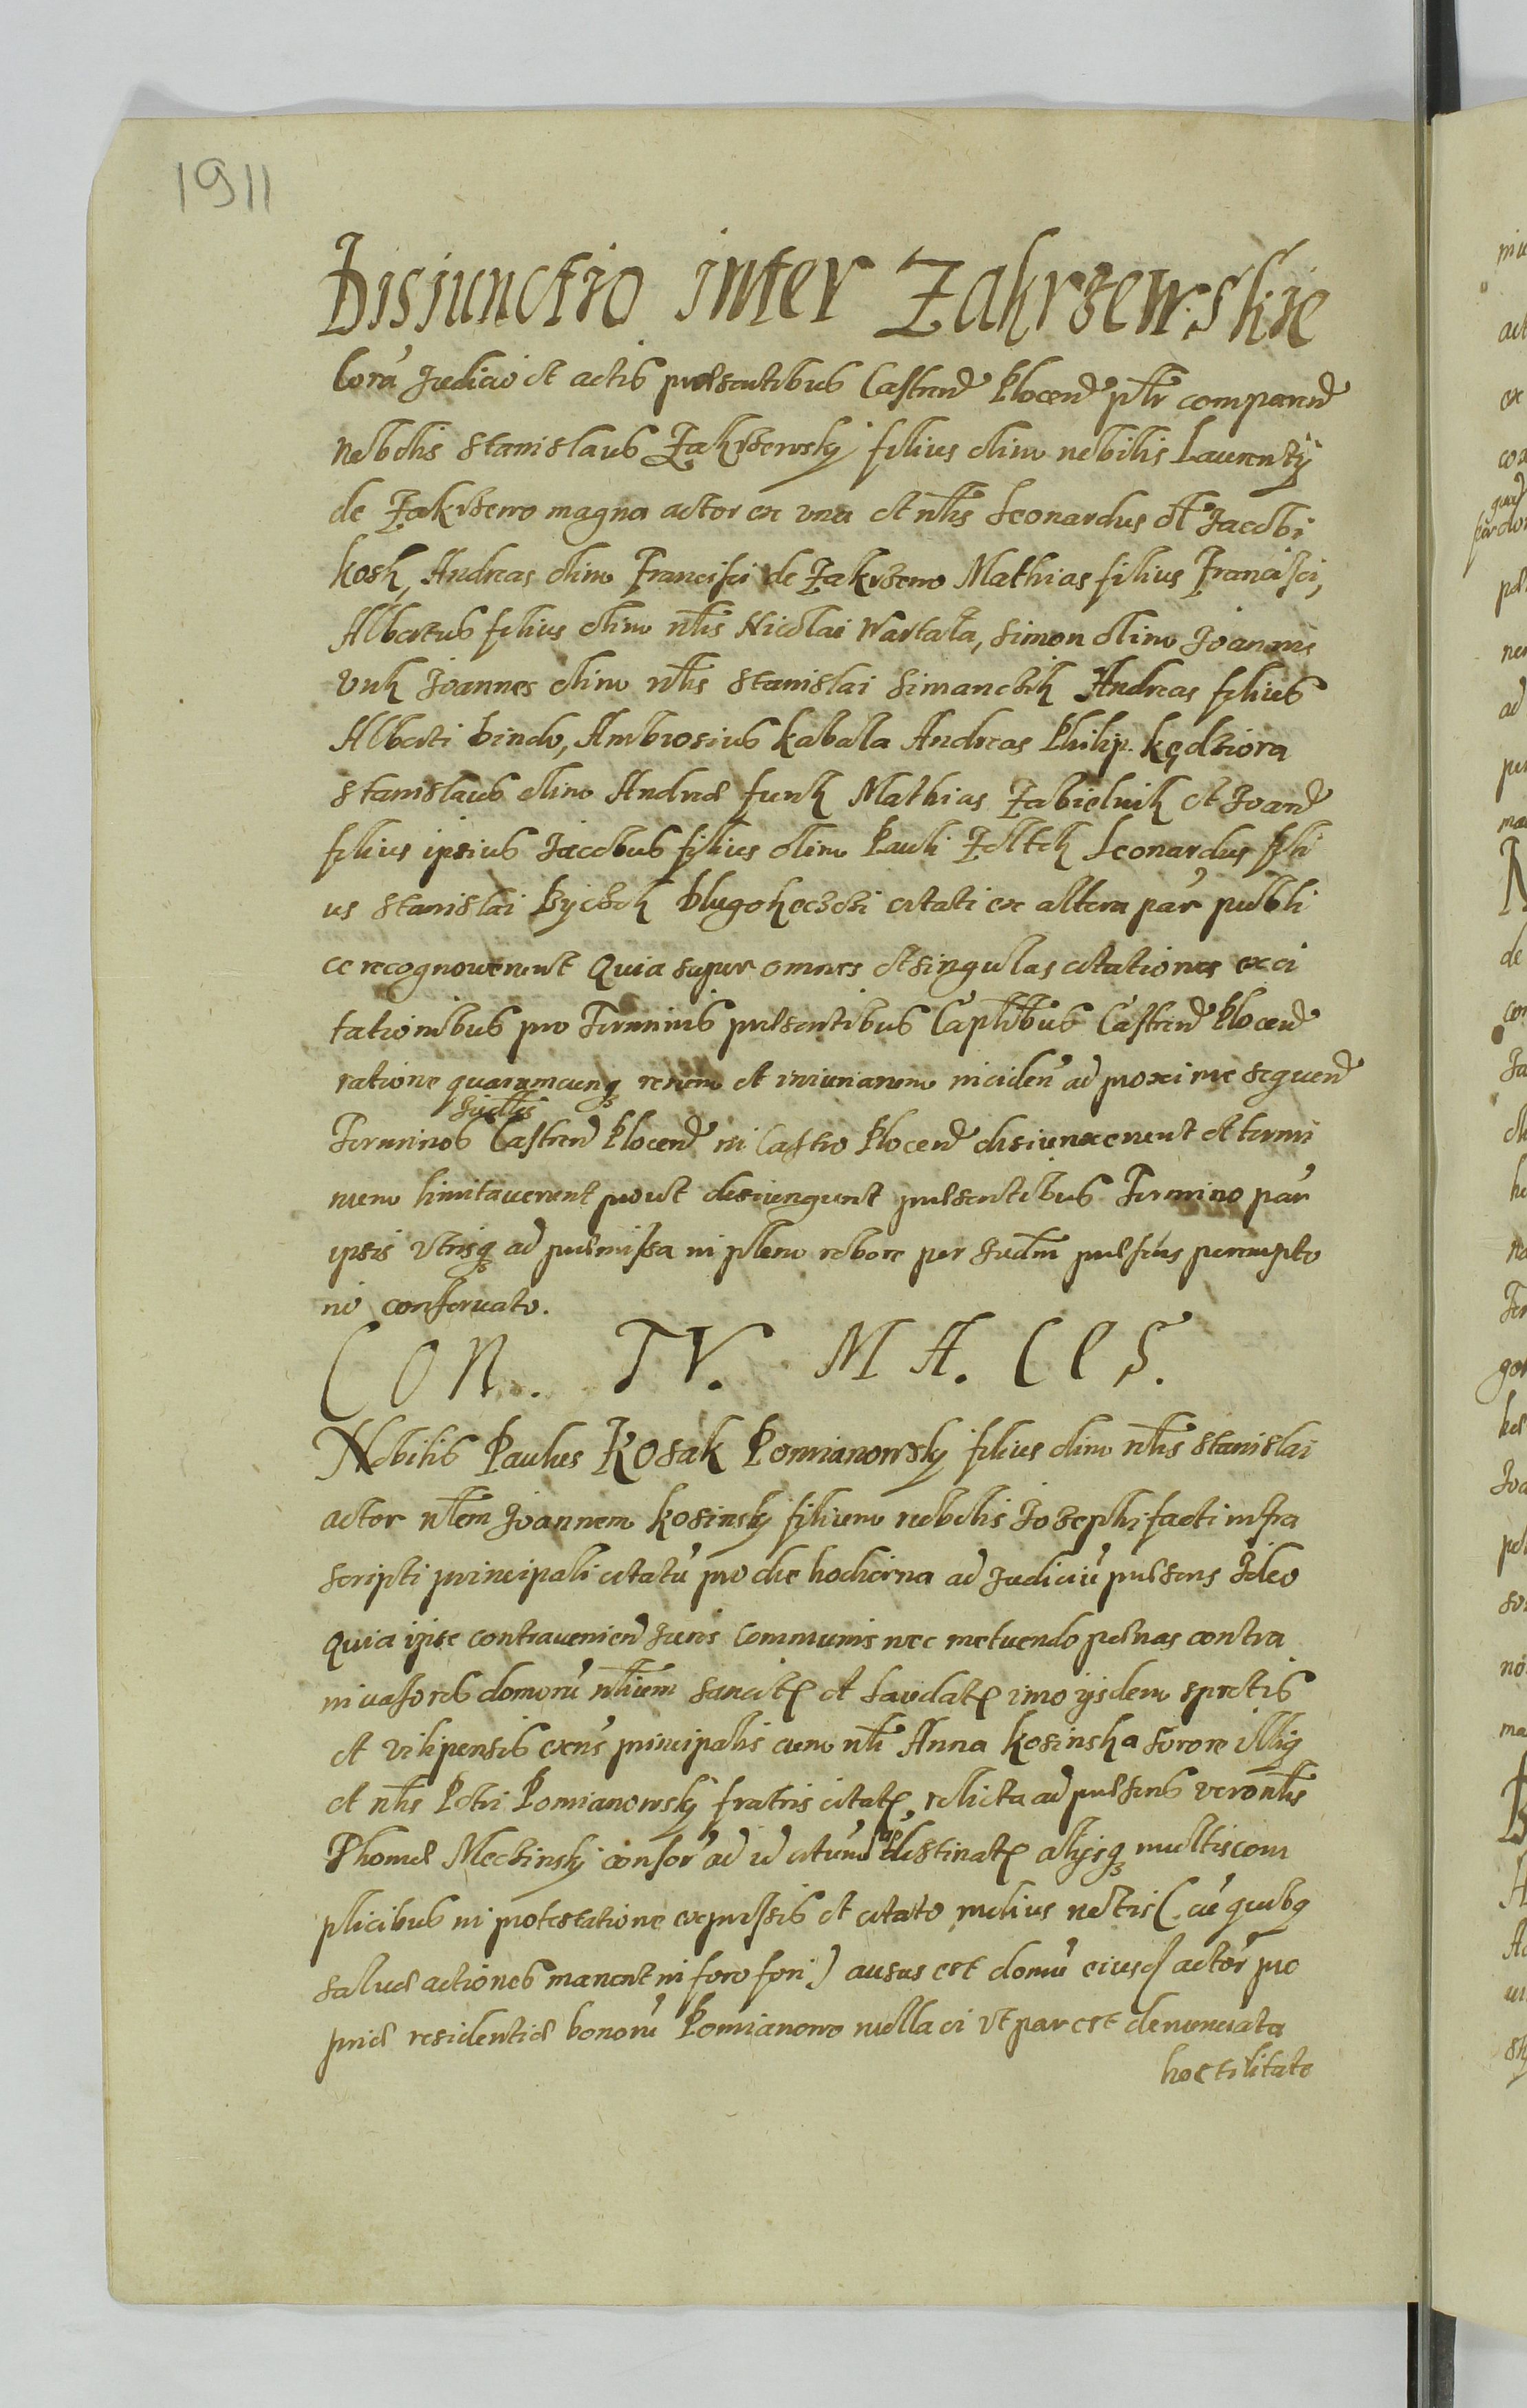 1911
Disiunctio inter Zakrzewskie
Corā Judicio et actis praesentibus Castren̄ Plocen̄ pʳʳ comparen̄
nobilis Stanislaus Zakrzewsky filius olim nobilis Laurentÿ
de Zakrzewo magna actor ex una et nłis Leonardus oł Jacobi
Kosk, Andreas olim Francisci de Zakrzewo Mathias filius Francisci,
Albertus filius olim nłis Nicolai Wartała, Simon olim Joannis
Vnk Joannes olim nłis Stanislai Simanczik Andreas filius
Alberti Bindo, Ambrosius Kabala Andreas Philip. Kędziora
Stanislaus olim Andreae Funk Mathias Zabielnik et Joan̄
filius ipsius Jacobus filius olim Pauli Zołtek Leonardus fili
us Stanislai Byczek Dlugokęczski citati ex altera par̄ publi
ce recognoverunt Quia super omnes et singulas citationes ex ci
tationibus pro Terminis praesentibus Capłłibus Castren̄ Plocen̄
ratione quarumcunq rerum et iniuriarum inciden̄ ad proxime sequen̄
Judłes
Terminos Castren̄ Plocen̄ in Castro Plocen̄ disiunxerunt et termi
num limitaverunt prout disiungunt praesentibus Termino par̄
ipsis utrisq ad praemissa in pleno robore per Judm praesens perempto
rio conservato.
CON. TV. MA. CES.
Nobilis Paulus Kosak Pomianowsky filius olim nłis Stanislai
actor nłem Joannem Kosinsky filium nobilis Josephi facti infra
scripti principali citatū pro die hodierna ad Judiciū praesens Ideo
Quia ipse contravenien̄ Juris communis nec metuendo paenas contra
invasores domorū nłium sancitꝶ et laudatꝶ imo ijsdem spretis
et vilipensis exn̄s principalis cum nłi Anna Kosinska sorore illiꝰ
et nłis Petri Pomianowsky fratris citatꝶ relicta ad praesens vero nłis
Thomae Meczinsky consor̄ ad id citūm destinatꝶ alijsq multis com
plicibus in protestatione expressis et citato melius notis (cū quibꝰ
salvae actiones manent in foro fori) ausus est domū eiusd actor̄ pro
priae residentiae bonorū Pomianowo nulla ei ut par est denunciata
hostilitate